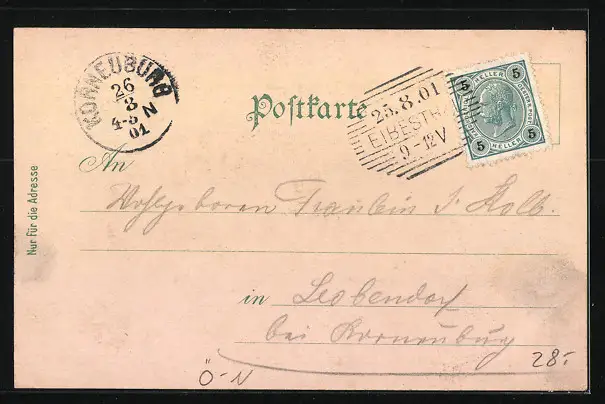 KORNEUBURG
26
8
4-5 N
01
Postkarte
25.8.01
EIBESTH
9-12V
5 HELLER 5
5 HELLER 5
An
Wohlgeboren Fräulein J. Kolb.
in Leobendorf
bei Korneuburg
Nur für die Adresse
Ö-N
28.-